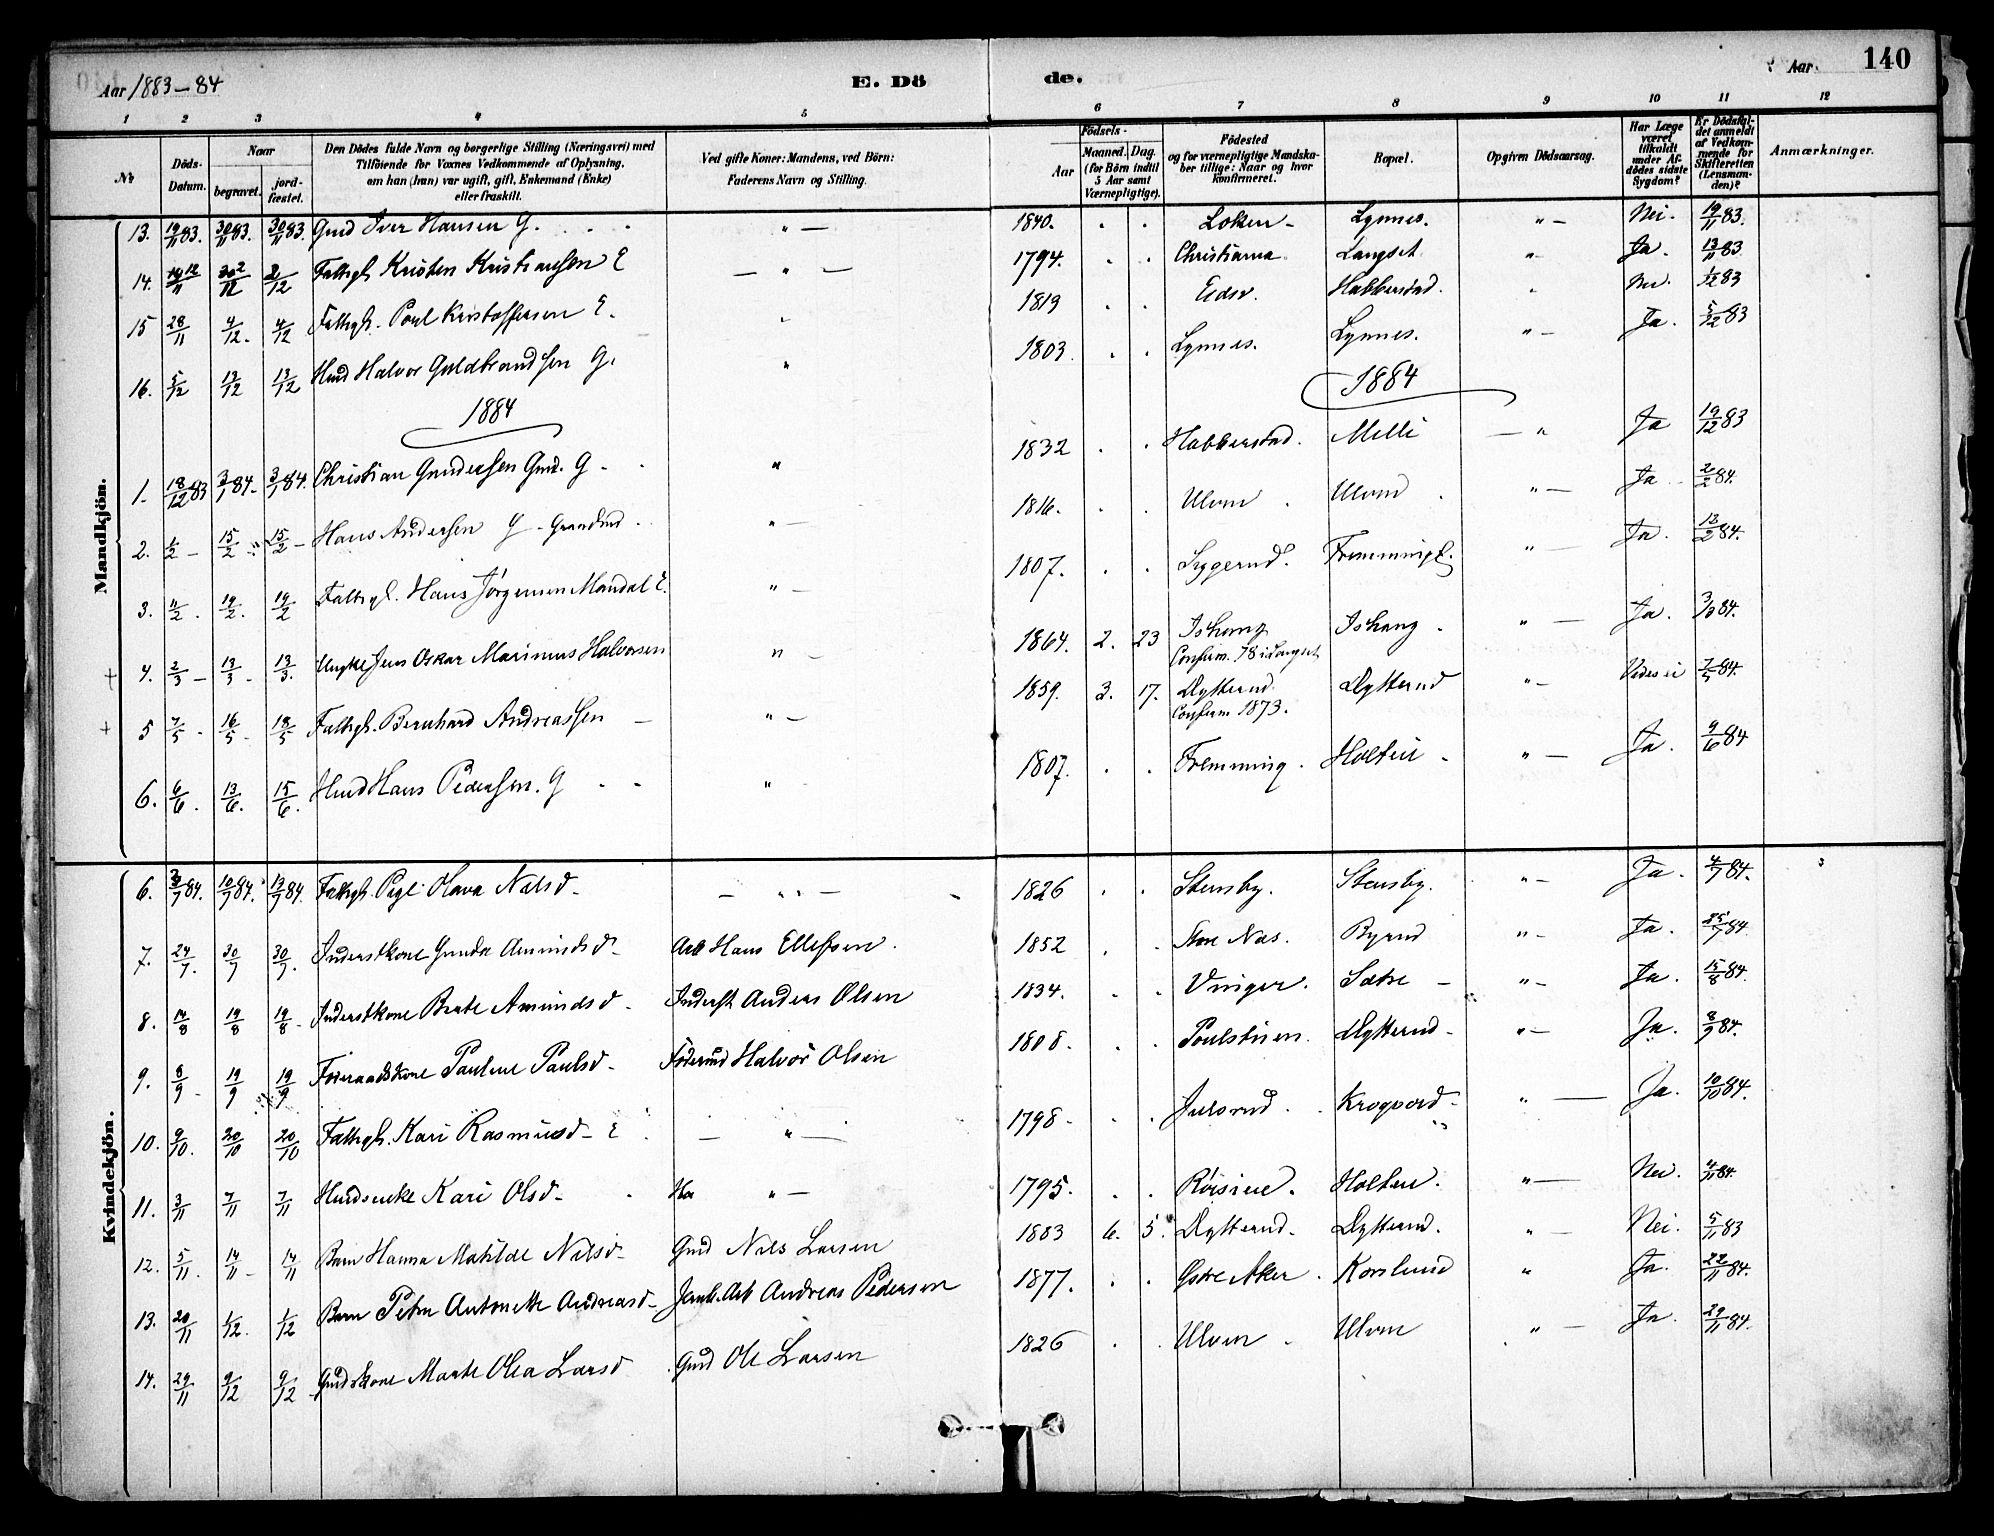 Aar 1883-84
E. Dö
de.
Aar.
140
1 2 3 4 5 6 7 8 9 10 11 12
№
Döds-Datum.
Naar
begravet.
jord-fæstet.
Den Dödes fulde Navn og borgerlige Stilling (Næringsvei) med
Tilföiende for Voxnes Vedkommende af Oplysning,
om han (hun) var ugift, gift, Enkemand (Enke)
eller fraskilt.
Ved gifte Koner: Mandens, ved Börn:
Faderens Navn og Stilling.
Födsels-
Aar
Maaned. Dag.
(for Börn indtil
5 Aar samt
Værnepligtige).
Födested
og for værnepligtige Mandska-
ber tillige: Naar og hvor
konfirmeret.
Bopæl.
Opgiven Dödsaarsag.
Har Læge
været
tilkaldt
under Af-
dödes sidste
Sygdom?
Er Dödsfal-
det anmeldt
af Vedkom-
mende for
Skifteretten
(Lensman-
den)?
Anmærkninger.
Mandkjön.
13. 19/11 83. 30/11 83. 30/11 83. Gmd Iver Hansen G. " — 1840. Loken - Lynnes. " — Nei. 19/11 83.
14. 2/12 2/12 Fattigl. Kristen Kristiansen E — " — 1794. Christiania Langset. " Ja. 13/11 83.
15 28/11 4/12. 4/12 Fattigl. Poul Kristoffersen E. " 1819 Eidsv. Habberstad. " Nei. 1/12 83
16. 5/12 13/12 13/12 Hmd Halvor Guldbrandsen G. " 1803. Lynnes. Lynnes. " — Ja. 5/12 83
1884
1884
1. 18/12 83 3/1 84. 3/1 84. Christian Gundersen Gmd. G. " 1832 Habberstad. Melli — " Ja 19/12 83
2. 1/2 15/2 15/2 Hans Andersen G. " — 1816. Ulven. Ulven " — Ja. 2/2 84.
3. 11/2. 19/2. 19/2 Fattigl. Hans Jörgensen Mandal E. " — 1807. Ja. 13/2 84.
4. 2/3 13/3 13/3. Ungkl Jens Oskar Marinus Halvorsen " — 1864. 2. 23 Ishang Confirm. 78 i Langset Ishang. " — Ja. 3/3 84.
5 7/5 16/5 18/5 Fattigl. Bernhard Andreassen " — 1859. 3. 17. Dytterud. Confirm 1873. Dytterud " — Vides ei 7/5 84.
6. 6/6. 13/6. 15/6. Hmd Hans Pedersen. G " 1807. Fremming. Holten " — Ja. 9/6 84
Kvindekjön.
6. 3/7 84. 10/7 84. 13/7 84. Fattigl. Pige Olava Nilsd. — " — 1826 Stensby. Stensby. " — Ja. 4/7 84.
7. 24/7. 30/7 30/7. Inderstkone Gunda Amundsd. Arb Hans Ellefsen. 1852 Store Nas. Byrud " — Ja. 25/7 84
8. 14/8 19/8 19/8 Inderstkone Berte Amundsd. Inderst Anders Olsen 1834. Vinger. Sætre " — Ja. 15/8 84.
9. 8/9 19/9 19/9 Föderaadskone Pauline Paulsd. Födermd Halvor Olsen 1808. Poulstuen. Dytterud " — Ja. 8/9 84.
10. 9/10. 20/10 20/10 Fattigl. Kari Rasmusd. E — " — 1798. Julsrud. Krogvord " — Ja. 10/10 84.
11. 3/11 7/11 7/11 Hmdsenke Kari Olsd. " — 1795. Röisiue. Holten. " — Nei. 4/11 84.
12. 5/11. 14/11 14/11 Barn Hanna Matilde Nilsd. Gmd Nils Larsen 1883 6. 5. Dytterud. Dytterud. " — Nei. 5/11 83
13. 20/11 1/12. 1/12 Barn Petra Antonette Andreasd. Jernb. Arb Andreas Pedersen 1877. Östre Aker. Korslund " Ja. 22/11 84.
14. 29/11 9/12 9/12 Gmdskone Marte Olea Larsd. Gmd Ole Larsen 1826 Ulven Ulven " — Ja. 29/11 84.